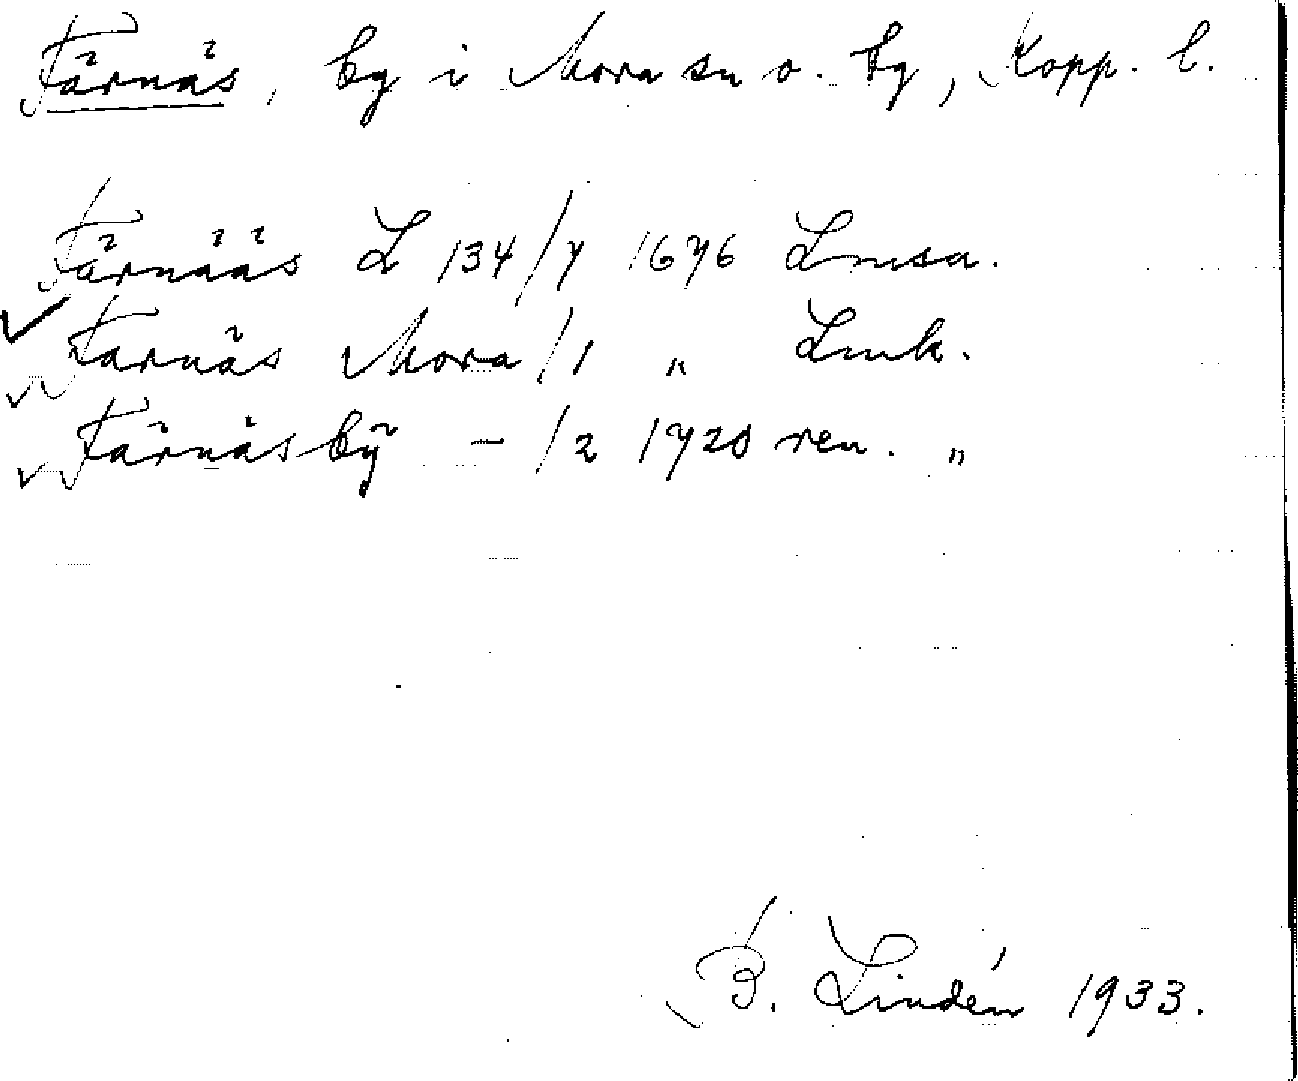 Färnäs, by i Mora sn o. tg, Kopp. l.
Färnääs L 134/7 1676 Lmsa.
Farnäs Mora/1 " Lmk.
Färnäs bÿ - /2 1720 ren. "
B. Lindén 1933.